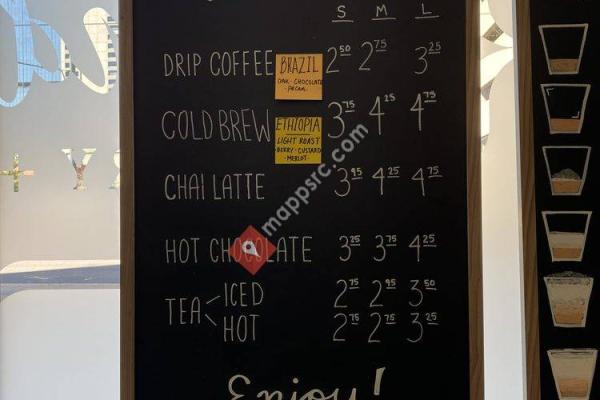 S M L
DRIP COFFEE 2 50 2 75 3 25
BRAZIL
OAK · CHOCOLATE
· PECAN ·
COLD BREW 3 75 4 25 4 75
ETHIOPIA
LIGHT ROAST
· BERRY · CUSTARD
· MERLOT ·
CHAI LATTE 3 95 4 25 4 75
HOT CHOCOLATE 3 25 3 75 4 25
TEA
ICED 2 75 2 95 3 50
HOT 2 75 2 75 3 25
Enjoy!
mappsrc.com